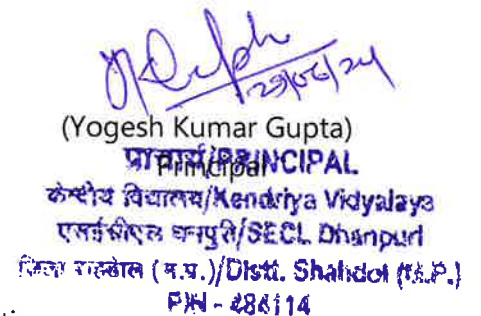 29/06/24
(Yogesh Kumar Gupta)
प्राचार्य/PRINCIPAL
Principal
केन्द्रीय विद्यालय/Kendriya Vidyalaya
एसईसीएल धनपुरी/SECL Dhanpuri
जिला शहडोल (म.प्र.)/Distt. Shahdol (M.P.)
PIN - 484114